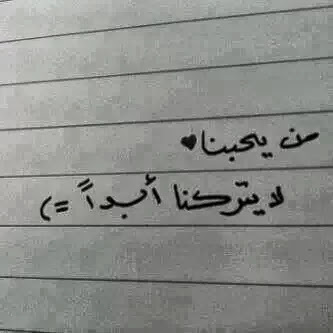 من يحبنا♥
لا يتركنا أبداً =)